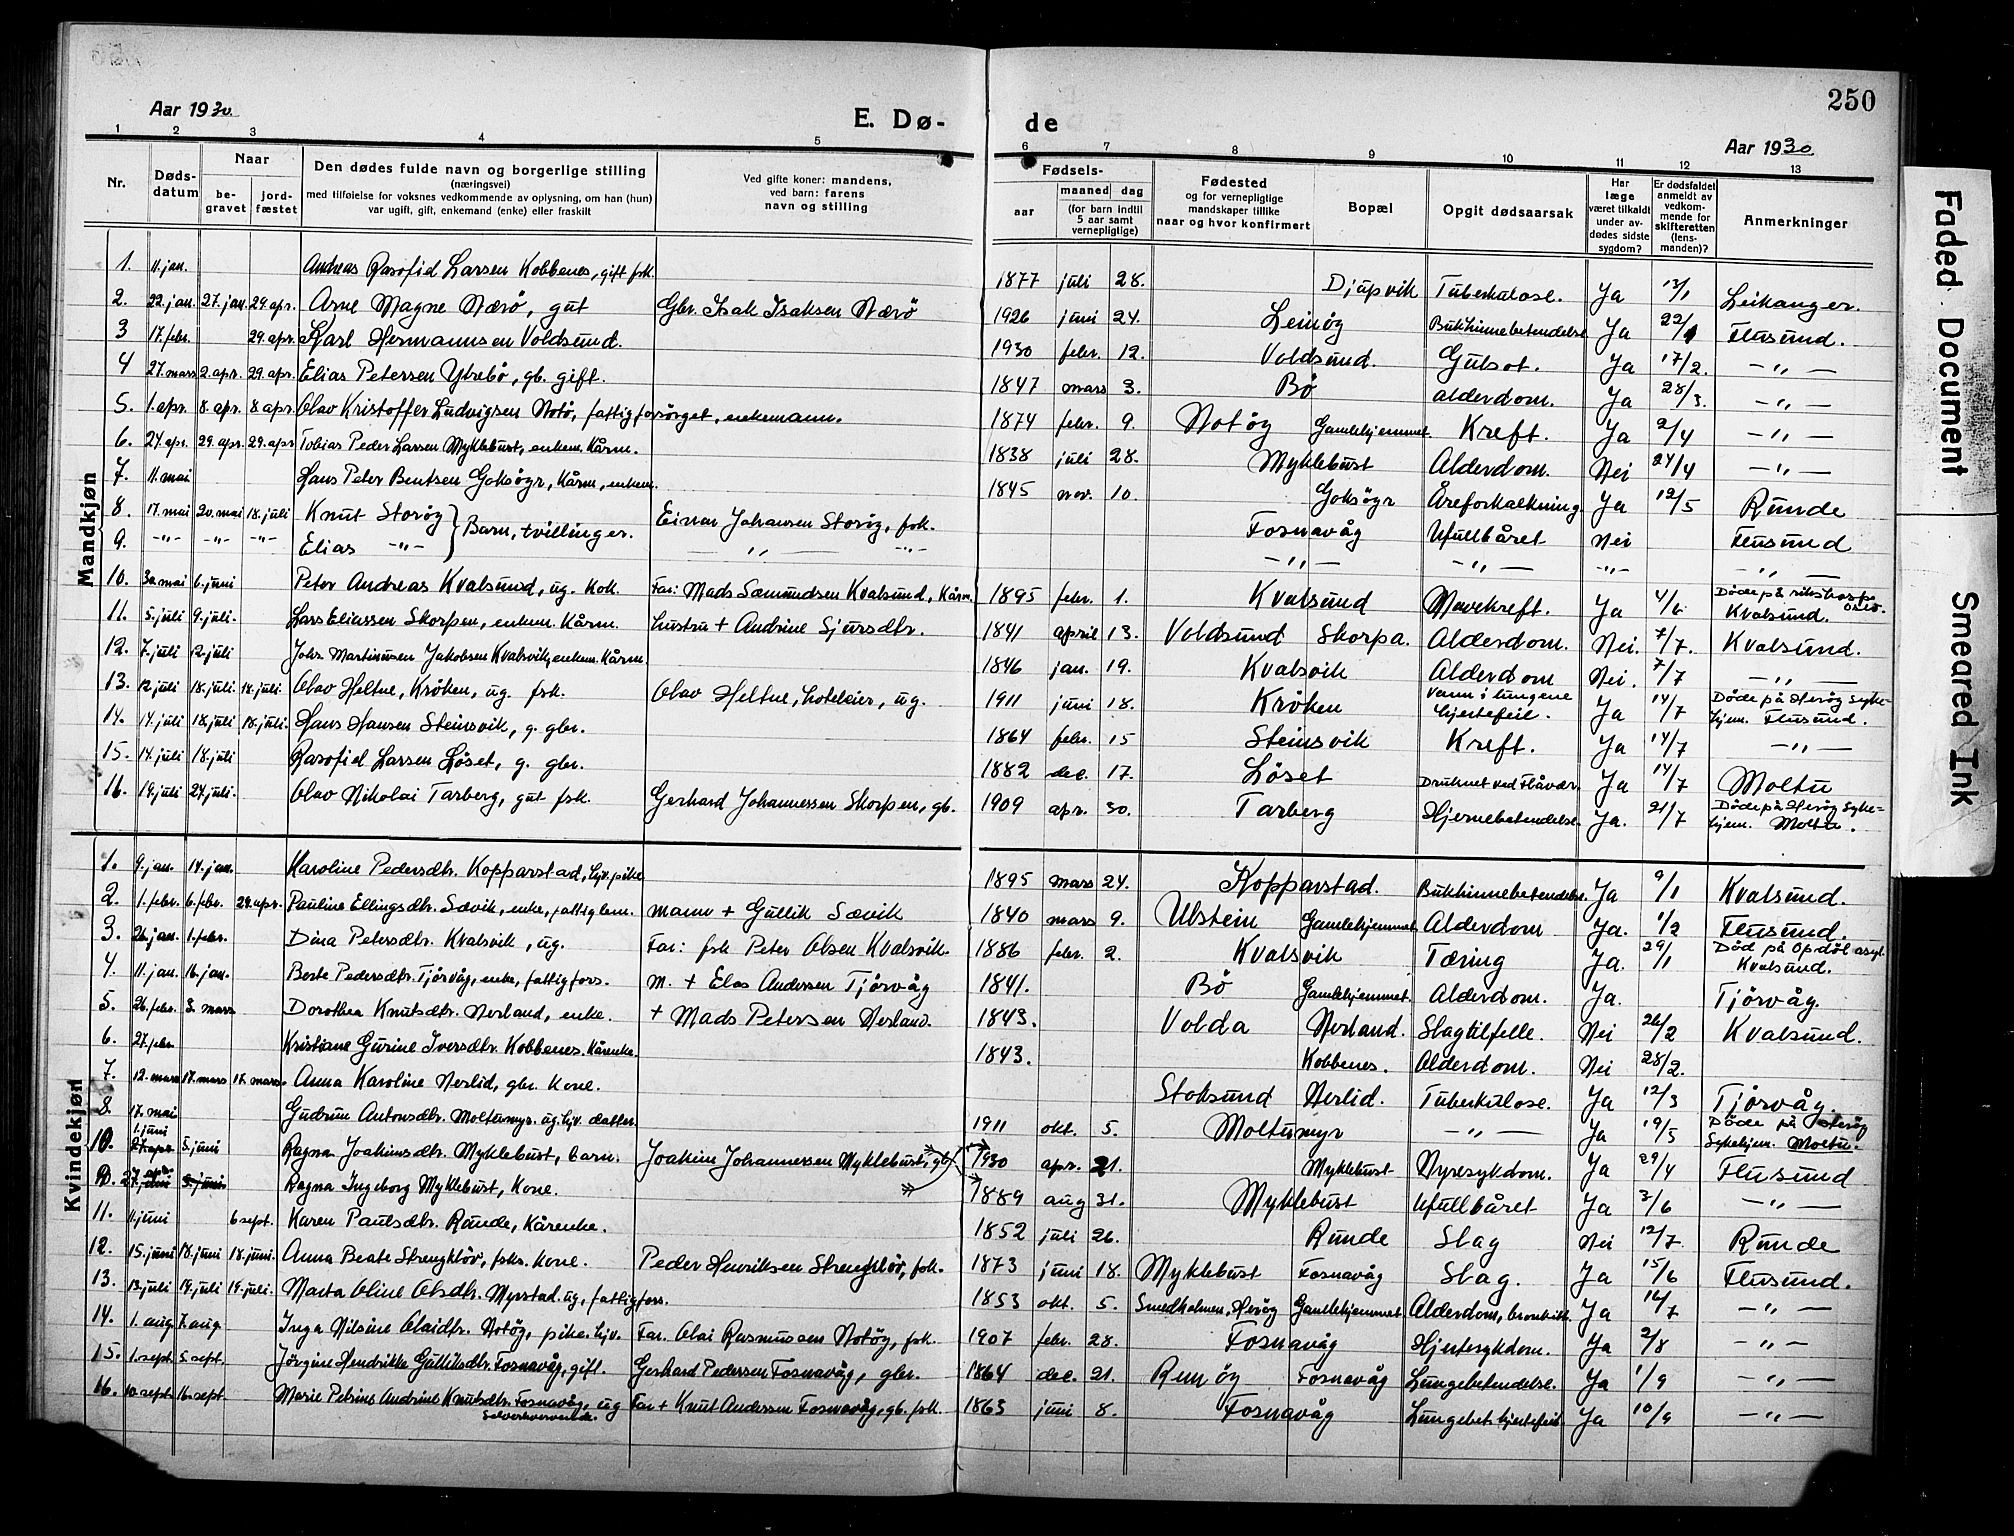 250
Aar 1930.
E. Dø- de
Aar 1930
1 2 3 4 5 6 7 8 9 10 11 12 13
Nr. Døds-datum Naar be-gravet jord-fæstet Den dødes fulde navn og borgerlige stilling (næringsvei) med tilføielse for voksnes vedkommende av oplysning, om han (hun) var ugift, gift, enkemand (enke) eller fraskilt Ved gifte koner: mandens, ved barn: farens navn og stilling Fødsels- aar maaned dag (for barn indtil 5 aar samt vernepligtige) Fødested og for vernepligtige mandskaper tillike naar og hvor konfirmert Bopæl Opgit dødsaarsak Har læge været tilkaldt under av-dødes sidste sygdom? Er dødsfaldet anmeldt av vedkom-mende for skifteretten (lens-manden)? Anmerkninger
Mandkjøn
1. 11. jan. Andreas Rasofid Larsen Kobbenes, gift fsk. 1877 juli 28. Djupvik Tuberkulose. Ja 13/1 Leikanger.
2. 22. jan. 27. jan. 29. apr. Arne Magne Nærö, gut Gbr. Isak Isaksen Nærö 1926 juni 24. Leinög Bukhinnebetendelse Ja 22/1 Flusund.
3 17. febr. 29. apr. Karl Hermannsen Voldsund. 1930 febr. 12. Voldsund. Gulsot. Ja 17/2. -„-
4 27. mars 2. apr. 29. apr. Elias Petersen Ytrebö, gb. gift. 1847 mars 3. Bö alderdom. Ja 28/3. -„-
5. 1. apr. 8. apr. 8 apr. Olav Kristoffer Ludvigsen Notö, fattigforsörget, enkemann. 1874 febr. 9. Notög Gamlehjemmet. Kreft. Ja 2/4 -„-
6. 24. apr. 29. apr. 29. apr. Tobias Peder Larsen Myklebust, enkem. Kårm. 1838 juli 28. Myklebust Alderdom. Nei 24/4 -„-
7. 11. mai Hans Peter Bentsen Goksöyr, Kårm, enkem. 1845 nov. 10. Goksöyr Åreforkalkning Ja 12/5 Runde
8. 17. mai 20. mai 18. juli Knut Storög } Barn, tvillinger. Einar Johansen Storög, fsk. Fosnavåg Ufullbåret Nei Flusund
9. -„- -„- -„- Elias -„- -„- -„- -„- -„- -„- -„-
10. 30. mai 6. juni Peter Andreas Kvalsund, ug. kok. Far: Mads Sæmundsen Kvalsund, Kårm. 1895 febr. 1. Kvalsund Mavekreft. Ja 4/6 Döde på rikshosp. Oslo. Kvalsund.
11. 5. juli 9. juli. Lars Eliassen Skorpen, enkem. Kårm. hustru + Andrine Sjursdtr. 1841 april 13. Voldsund Skorpa. Alderdom. Nei. 7/7. Kvalsund.
12. 7. juli 12. juli Johs. Martinusen Jakobsen Kvalsvik, enkem. Kårm. 1846 jan. 19. Kvalsvik Alderdom Nei. 7/7 -„-
13. 12 juli 18. juli. 18. juli. Olav Heltne, Kröken, ug. fsk. Olav Heltne, hoteleier, ug. 1911 juni 18. Kröken Vann i lungene hjertefeil. Ja 14/7 Döde på Heröy Syke-hjem. Flusund.
14. 14. juli 18. juli 18. juli. Hans Hansen Steinsvik, g. gbr. 1864 febr. 15 Steinsvik Kreft. Ja 14/7 -„-
15. 14. juli 18. juli Rasofid Larsen Löset, g. gbr. 1882 dec. 17. Löset Druknet ved Flåvær. Ja 14/7 Moltu
16. 19. juli 24. juli. Olav Nikolai Tarberg, gut fsk. Gerhard Johannessen Skorpen, gb. 1909 apr. 30. Tarberg Hjernebetendelse. Ja. 21/7 Döde på Heröy Syke-hjem. Moltu.
Kvindekjøn
1. 9. jan. 14. jan. Karoline Pedersdtr. Kopparstad, hjv. pike 1895 mars 24. Kopparstad. Bukhinnebetendelse Ja 9/1 Kvalsund.
2. 1. febr. 6. febr. 29. apr. Pauline Ellingsdtr. Sævik, enke, fattiglem. mann + Gullik Sævik 1840 mars 9. Ulstein Gamlehjemmet Alderdom Ja. 1/2 Flusund.
3. 26. jan. 1. febr. Dina Petersdtr. Kvalsvik, ug. Far: fsk Peter Olsen Kvalsvik. 1886 febr. 2. Kvalsvik Tæring Ja. 29/1 Död på Opdöl asyl. Kvalsund.
4. 11. jan. 16. jan. Berte Pedersdtr. Tjörvåg, enke, fattigfors. m. + Elas Andersen Tjörvåg 1841. Bö Gamlehjemmet. Alderdom. Ja. Tjörvåg.
5. 26. febr. 3. mars Dorothea Knutsdtr. Nerland, enke. + Mads Petersen Nerland. 1843. Volda Nerland. Slagtilfelle. Nei 26/2 Kvalsund.
6. 27. febr. Kristiane Gurine Iversdtr. Kobbenes. Kårenke. 1843. Kobbenes. Alderdom. Nei 28/2.
7. 12. mars 17. mars 17. mars. Anna Karoline Nerlid, gbr. kone. Stoksund Nerlid. Tuberkulose. Ja 12/3 Tjörvåg.
8. 17. mai Gudrun Antonsdtr. Moltumyr. ug. hjv. datter. 1911 okt. 5. Moltumyr -„- Ja 19/5 Döde på Heröy Sykehjem. Moltu.
10. 1. juni 27. apr. 5. juni Ragna Joakimsdtr. Myklebust, barn. Joakim Johannessen Myklebust, gb. 1930 apr. 21. Myklebust Nyresykdom. Ja 29/4 Flusund
9. 27. apr. juni 5. juni Ragna Ingeborg Myklebust, kone. 1889 aug 31. Myklebust Ufullbåret Ja 3/6 -„-
11. 11. juni 6 sept. Karen Paulsdtr. Runde, Kårenke. 1852 juli 26. Runde Slag Nei 12/7 Runde
12. 15. juni 18. juni 18. juni. Anna Beate Strengklöv, fsks. kone. Peder Henriksen Strengklöv, fsk. 1873 juni 18. Myklebust Fosnavåg Slag. Ja 15/6 Flusund.
13. 13. juli 19. juli 19. juli. Marta Oline Olsdtr. Myrstad. ug, fattigfors. 1853 okt. 5. Smedholmen, Heröy Gamlehjemmet Alderdom, bronkitt. Ja 14/7 -„-
14. 1. aug. 7. aug. Inga Nilsine Olaidtr. Notög, pike. hjv. Far. Olai Rasmussen Notög, fsk. 1907 febr. 28. Fosnavåg Hjertesykdom. Ja 2/8 -„-
15. 1. sept. 5. sept. Jörgine Hendrikke Gulliksdtr. Fosnavåg, gift. Gerhard Pedersen Fosnavåg, gbr. 1864 dec. 21. Remöy Fosnavåg Lungebetendelse. Ja 1/9 -„-
16. 10. sept. 16. sept. Marie Petrine Andrine Knutsdtr. Fosnavåg, ug Selverhvervende. Far + Knut Andersen Fosnavåg, gb. fsk. 1863 juni 8. Fosnavåg Lungebet. hjertefeil Ja 10/9 -„-
Faded Document
Smeared Ink